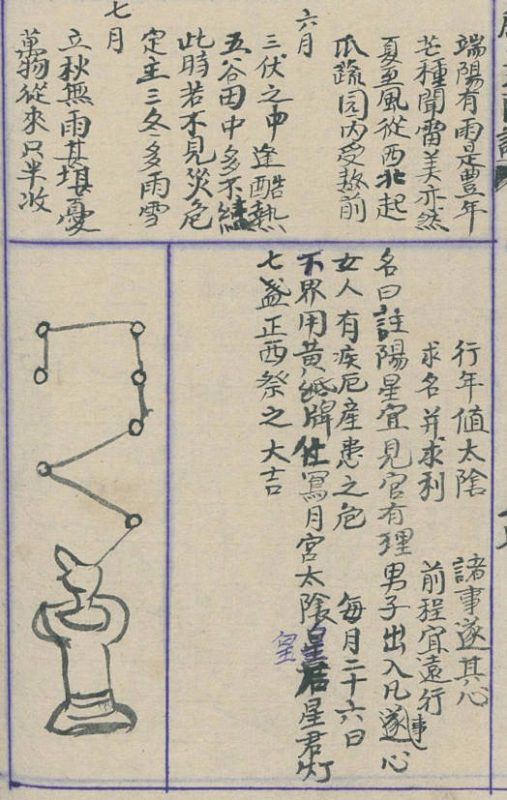 端陽有雨是豊年
芒種聞雷美亦然
夏至風從西北起
瓜蔬园内受熬煎
六月
三伏之中逢酷熱
五谷田中多不結
此時若不見災危
定主三冬多雨雪
七月
立秋無雨甚堪憂
萬物從來只半收
行年值太陰　諸事遂其心
求名并求利　前程宜遠行
名曰註陽星宜見官有理男子出入凡事遂心
女人有疾厄產患之危　每月二十六日
下界用黄紙牌位寫月宮太陰皇君星君灯
皇
七盏正西祭之大吉